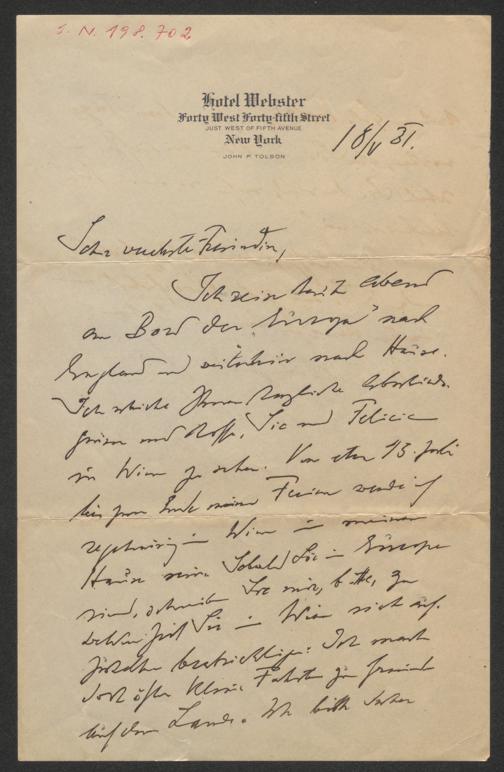 I. N. 198.702
Hotel Webster
Forty West Forty-fifth Street
JUST WEST OF FIFTH AVENUE
New York
JOHN P. TOLSON
18/V 31.
Sehr verehrte Freundin,
Ich reise heute abend
an Bord der „Europa" nach
England und weiterhin nach Hause.
Ich schicke Ihnen herzliche Abschieds-
grüsse und hoffe, Sie und Felicie
in Wien zu sehen. Von etwa 15. Juli
bis zum Ende meiner Ferien werde ich
regelmässig in Wien in meinem
Hause sein. Sobald Sie in Europa
sind, schreiben Sie mir, bitte, zu
welcher Zeit Sie in Wien sich
beabsichtigen: Ich mache
dort öfter kleine Fahrten zu Freunden
auf dem Lande. Ich bitte daher